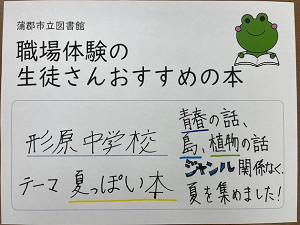 蒲郡市立図書館
職場体験の
生徒さんおすすめの本
形原中学校
テーマ 夏っぽい本
青春の話、
島、植物の話
ジャンル関係なく、
夏を集めました!